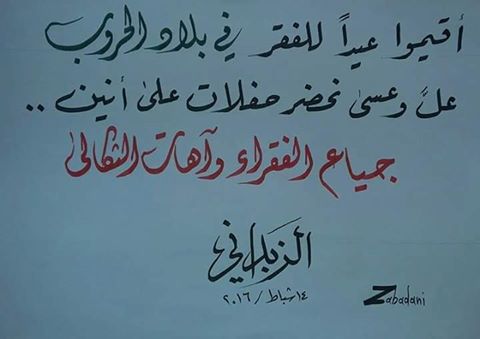 أقيموا عيداً للفقر في بلاد الحروب
علَّ وعسى نحضر حفلات على أنين ..
جياع الفقراء وآهات الثكالى
الزبداني
١٤ شباط / ٢٠١٦
Zabadani